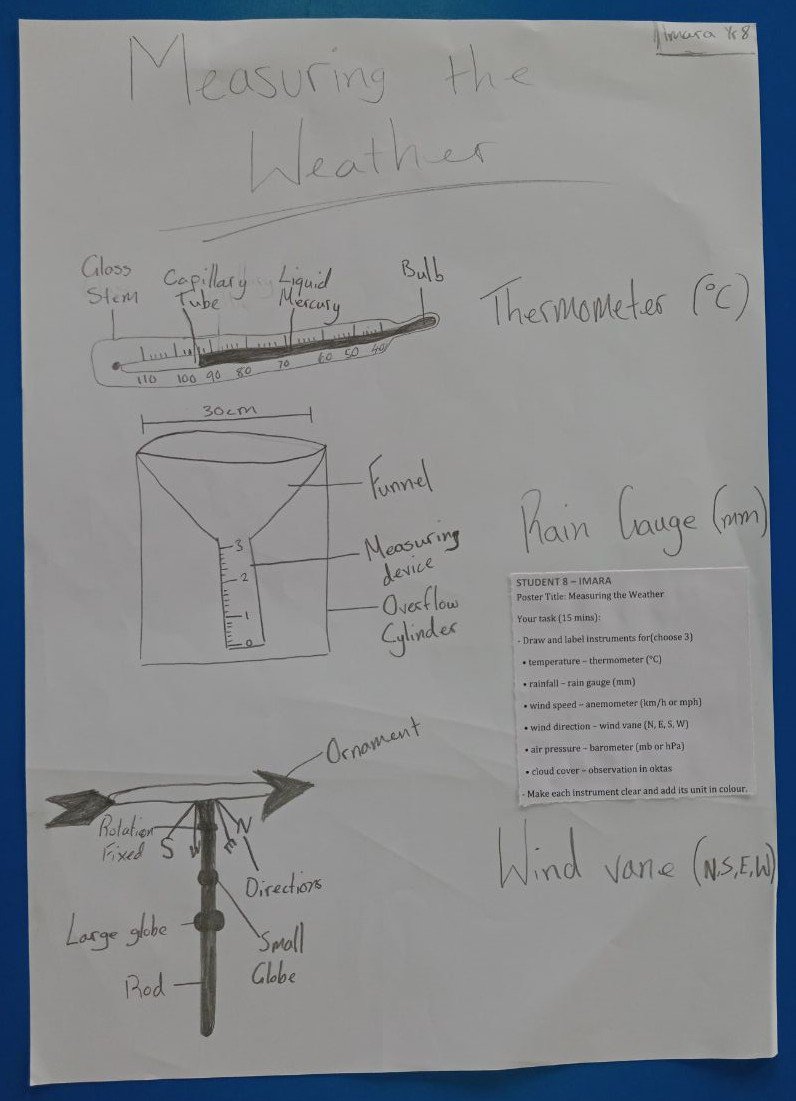 Imara Yr8
Measuring the
Weather
Glass
Stem
Capillary
Tube
Liquid
Mercury
Bulb
Thermometer (°C)
110 100 90 80 70 60 50 40
30cm
Funnel
Measuring
device
Overflow
Cylinder
3
2
1
0
Rain Gauge (mm)
STUDENT 8 – IMARA
Poster Title: Measuring the Weather
Your task (15 mins):
- Draw and label instruments for(choose 3)
• temperature – thermometer (°C)
• rainfall – rain gauge (mm)
• wind speed – anemometer (km/h or mph)
• wind direction – wind vane (N, E, S, W)
• air pressure – barometer (mb or hPa)
• cloud cover – observation in oktas
- Make each instrument clear and add its unit in colour.
Ornament
Rotation
Fixed
S W E N
Directions
Large globe
Small
Globe
Rod
Wind vane (N,S,E,W)